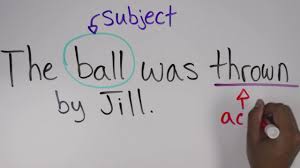 subject
The ball was thrown
by Jill.
ac